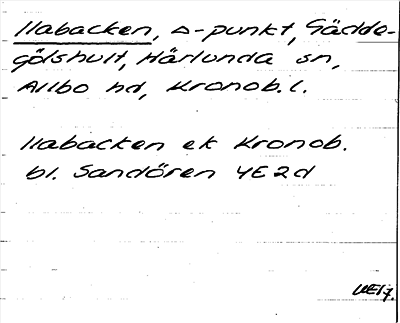 Ilabacken, △-punkt, Gädde-
gölshult, Härlunda sn,
Allbo hd, Kronob. l.
Ilabacken ek Kronob.
bl. Sandören 4E2d